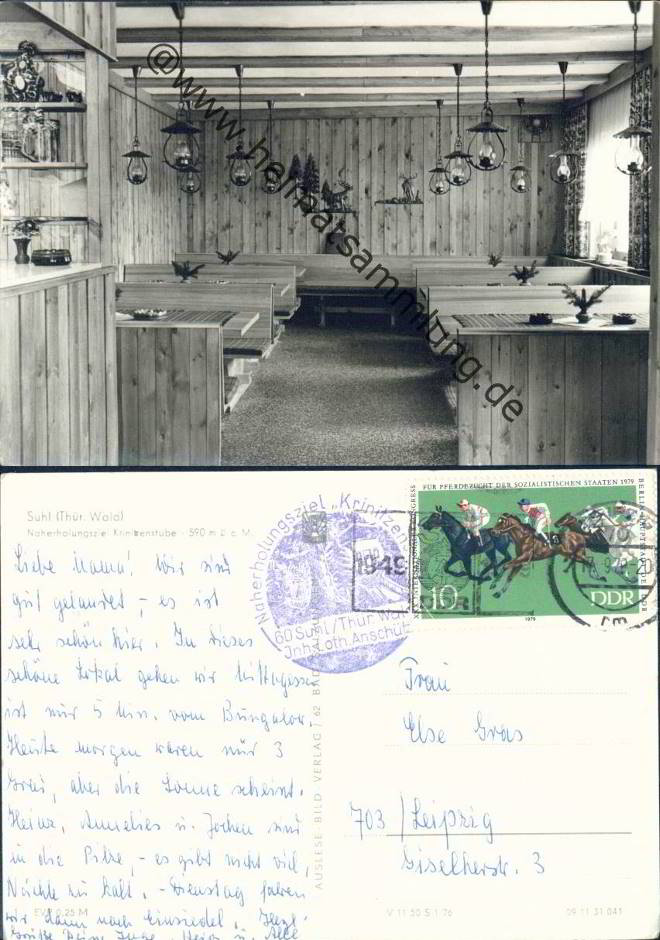 @www.heimatsammlung.de
Suhl (Thür. Wald)
Naherholungsziel Krinitzenstube - 590 m ü. d. M.
Liebe Mama! Wir sind
gut gelandet, - es ist
sehr schön hier. In dieses
schöne Lokal gehen wir Mittagessen
ist nur 5 Min. vom Bungalow.
Heute morgen waren nur 3
Grad, aber die Sonne scheint.
Heinz, Annelies u. Jochen sind
in die Pilze, - es gibt nicht viel,
Nächte zu kalt. - Dienstag fahren
wir dann nach Einsiedel. Herzl.
Grüße Deine Inge, Heinz u. Alle
EVP 0,25 M
AUSLESE-BILD-VERLAG / 62 BAD
Naherholungsziel "Krinitzen
60 Suhl/Thür. Wald
Jnh. Loth. Anschütz
1949
FÜR PFERDEZUCHT DER SOZIALISTISCHEN STAATEN 1979
10
DDR
1979
Frau
Else Gras
703 / Leipzig
Giselherstr. 3
V 11 50 S 1/76
09 11 31 041